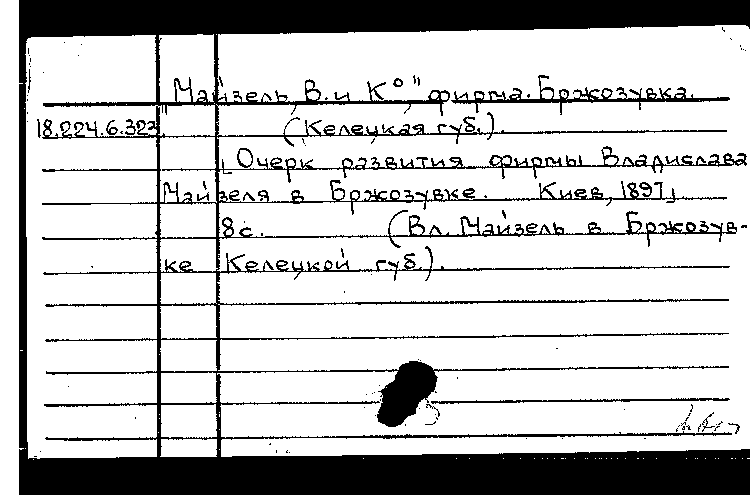 "Майзель, В. и К°", фирма. Бржозувка.
18.224.6.323. (Келецкая губ.).
[Очерк развития фирмы Владислава
Майзеля в Бржозувке. Киев, 1897]
8 с. (Вл. Майзель в Бржозув-
ке Келецкой губ.).